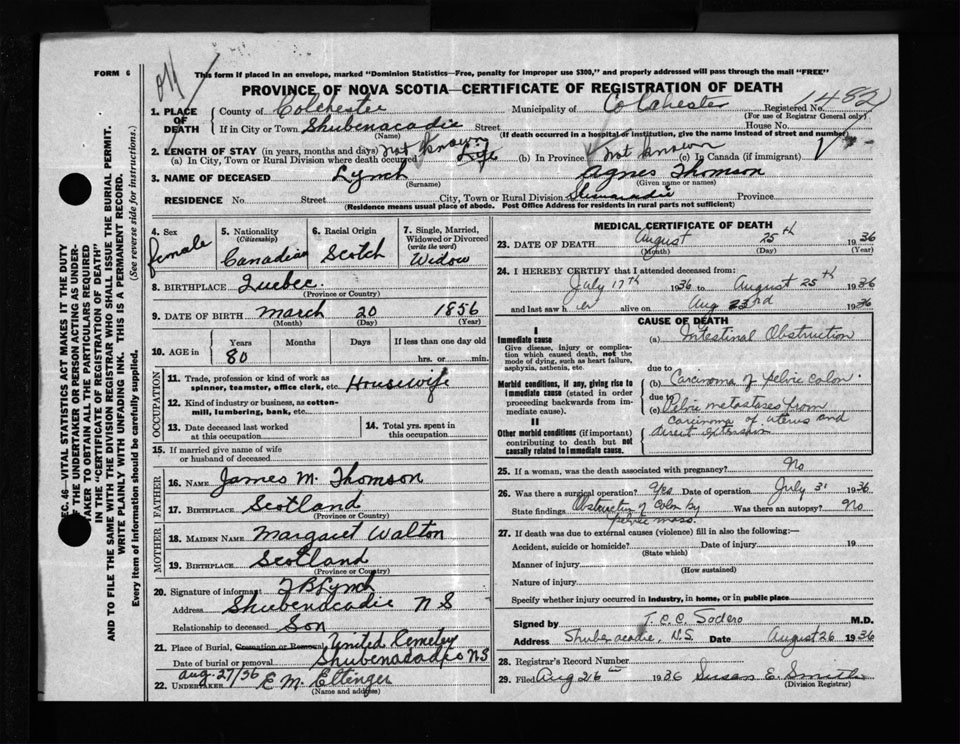 FORM 6
This form if placed in an envelope, marked "Dominion Statistics—Free, penalty for improper use $300," and properly addressed will pass through the mail "FREE"
PROVINCE OF NOVA SCOTIA—CERTIFICATE OF REGISTRATION OF DEATH
1. PLACE OF DEATH County of Colchester Municipality of Colchester Registered No. 1482
(For use of Registrar General only)
If in City or Town Shubenacadie Street House No.
(Name) (If death occurred in a hospital or institution, give the name instead of street and number)
2. LENGTH OF STAY (in years, months and days) not known
(a) In City, Town or Rural Division where death occurred Life (b) In Province not known (c) In Canada (if immigrant)
3. NAME OF DECEASED Lynch Agnes Thomson
(Surname) (Given name or names)
RESIDENCE No. Street City, Town or Rural Division Province
(Residence means usual place of abode. Post Office Address for residents in rural parts not sufficient)
4. Sex female
5. Nationality (Citizenship) Canadian
6. Racial Origin Scotch
7. Single, Married, Widowed or Divorced (write the word) Widow
8. BIRTHPLACE Quebec.
(Province or Country)
9. DATE OF BIRTH March 20 1856
(Month) (Day) (Year)
10. AGE in Years Months Days If less than one day old
80 hrs. or min.
OCCUPATION
11. Trade, profession or kind of work as spinner, teamster, office clerk, etc. Housewife
12. Kind of industry or business, as cotton-mill, lumbering, bank, etc.
13. Date deceased last worked at this occupation
14. Total yrs. spent in this occupation
15. If married give name of wife or husband of deceased
FATHER
16. NAME James M. Thomson
17. BIRTHPLACE Scotland
(Province or Country)
MOTHER
18. MAIDEN NAME Margaret Walton
19. BIRTHPLACE Scotland
(Province or Country)
20. Signature of informant F B Lynch
Address Shubenacadie N S
Relationship to deceased Son
21. Place of Burial, Cremation or Removal United Cemetery
Date of burial or removal Shubenacadie N S
Aug. 27/36
22. UNDERTAKER E. M. Ettinger
(Name and address)
MEDICAL CERTIFICATE OF DEATH
23. DATE OF DEATH August 25th 1936
(Month) (Day) (Year)
24. I HEREBY CERTIFY that I attended deceased from:
July 17th 1936 to August 25th 1936
and last saw her alive on Aug 23rd 1936
CAUSE OF DEATH
I
Immediate cause
Give disease, injury or complication which caused death, not the mode of dying, such as heart failure, asphyxia, asthenia, etc.
(a) Intestinal Obstruction
due to
Morbid conditions, if any, giving rise to immediate cause (stated in order proceeding backwards from immediate cause).
(b) Carcinoma of pelvic colon.
due to
(c) Pelvic metastases from carcinoma of uterus and direct extension
II
Other morbid conditions (if important) contributing to death but not causally related to immediate cause.
25. If a woman, was the death associated with pregnancy? No
26. Was there a surgical operation? Yes Date of operation July 31 1936
State findings Obstruction of Colon by pelvic mass. Was there an autopsy? No
27. If death was due to external causes (violence) fill in also the following:
Accident, suicide or homicide? Date of injury 19
(State which)
Manner of injury
(How sustained)
Nature of injury
Specify whether injury occurred in industry, in home, or in public place
Signed by T. C. C. Sodero M.D.
Address Shubenacadie, N.S. Date August 26 1936
28. Registrar's Record Number
29. Filed Aug 26th 1936 Susan E. Smith
(Division Registrar)
SEC. 46—VITAL STATISTICS ACT MAKES IT THE DUTY
OF THE UNDERTAKER OR PERSON ACTING AS UNDER-
TAKER TO OBTAIN ALL THE PARTICULARS REQUIRED
IN THE "CERTIFICATE OF REGISTRATION OF DEATH"
AND TO FILE THE SAME WITH THE DIVISION REGISTRAR WHO SHALL ISSUE THE BURIAL PERMIT.
WRITE PLAINLY WITH UNFADING INK. THIS IS A PERMANENT RECORD.
Every item of information should be carefully supplied. (See reverse side for instructions.)